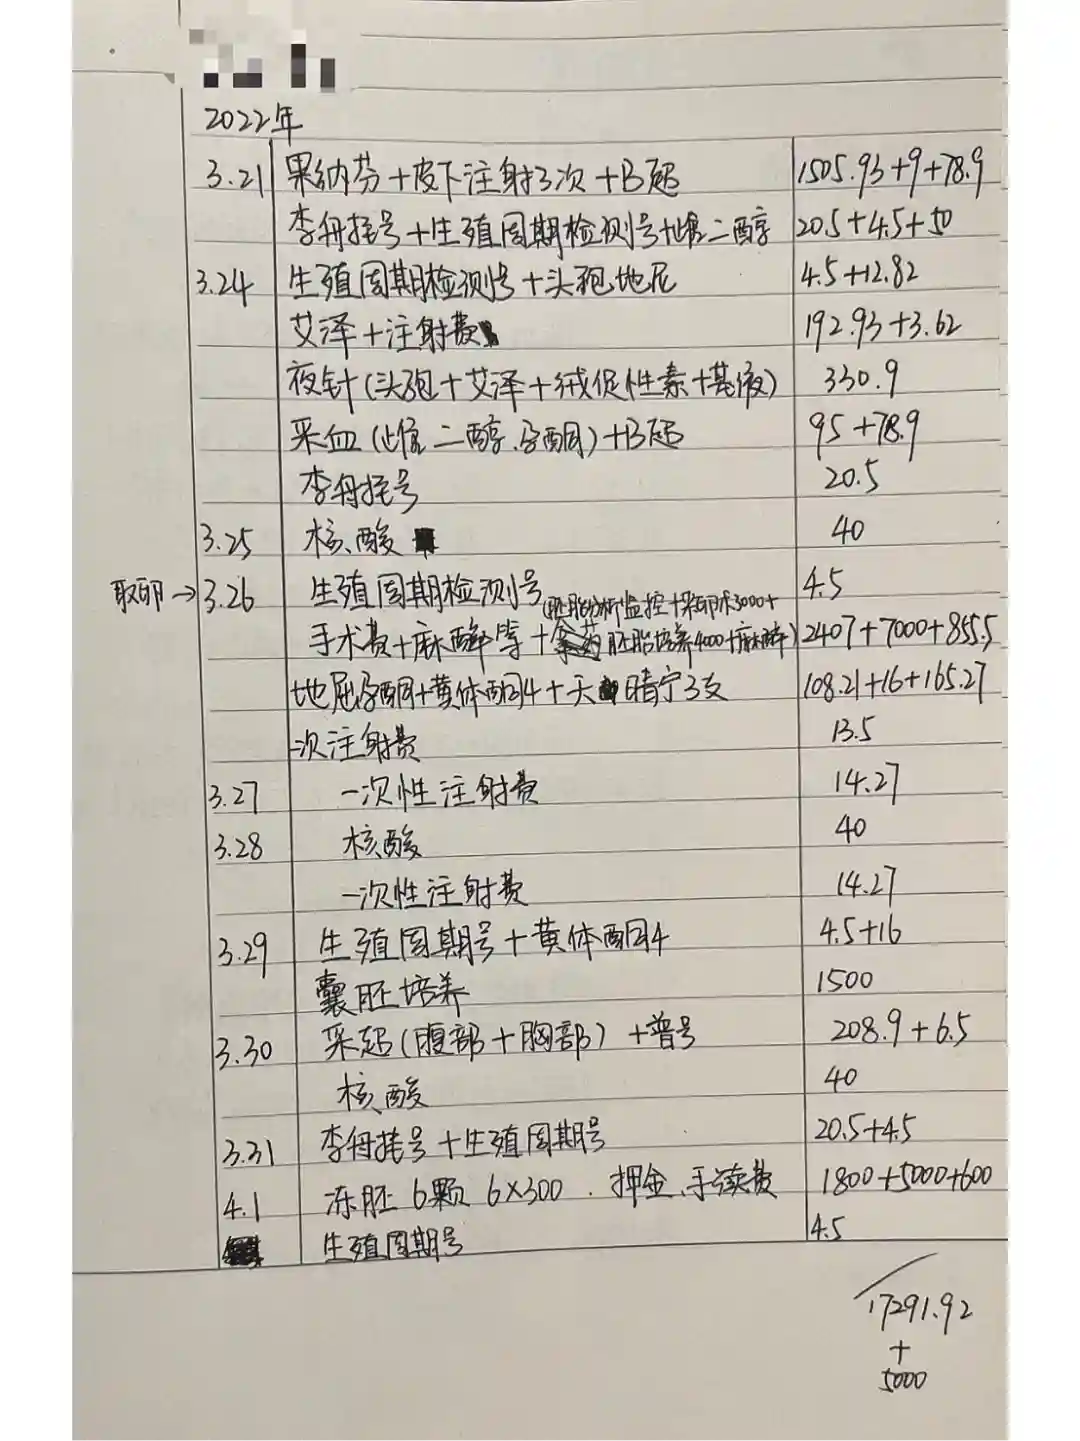 2022年
3.21 果纳芬+皮下注射3次+B超 1505.93+9+78.9
李舟挂号+生殖周期检测号+雌二醇 20.5+4.5+50
3.24 生殖周期检测号+头孢地尼 4.5+12.82
艾泽+注射费 192.93+3.62
夜针(头孢+艾泽+绒促性素+基液) 330.9
采血(雌二醇.孕酮)+B超 95+78.9
李舟挂号 20.5
3.25 核酸 40
取卵→3.26 生殖周期检测号 4.5
(胚胎分析监控+采卵术3000+
手术费+麻醉等+胚胎培养4000+麻醉) 2407+7000+855.5
地屈孕酮+黄体酮4+天晴宁3支 108.21+16+165.27
一次注射费 13.5
3.27 一次性注射费 14.27
3.28 核酸 40
一次性注射费 14.27
3.29 生殖周期号+黄体酮4 4.5+16
囊胚培养 1500
3.30 采超(腹部+胸部)+普号 208.9+6.5
核酸 40
3.31 李舟挂号+生殖周期号 20.5+4.5
4.1 冻胚6颗 6×300.押金、手续费 1800+5000+600
生殖周期号 4.5
17291.92
+
5000